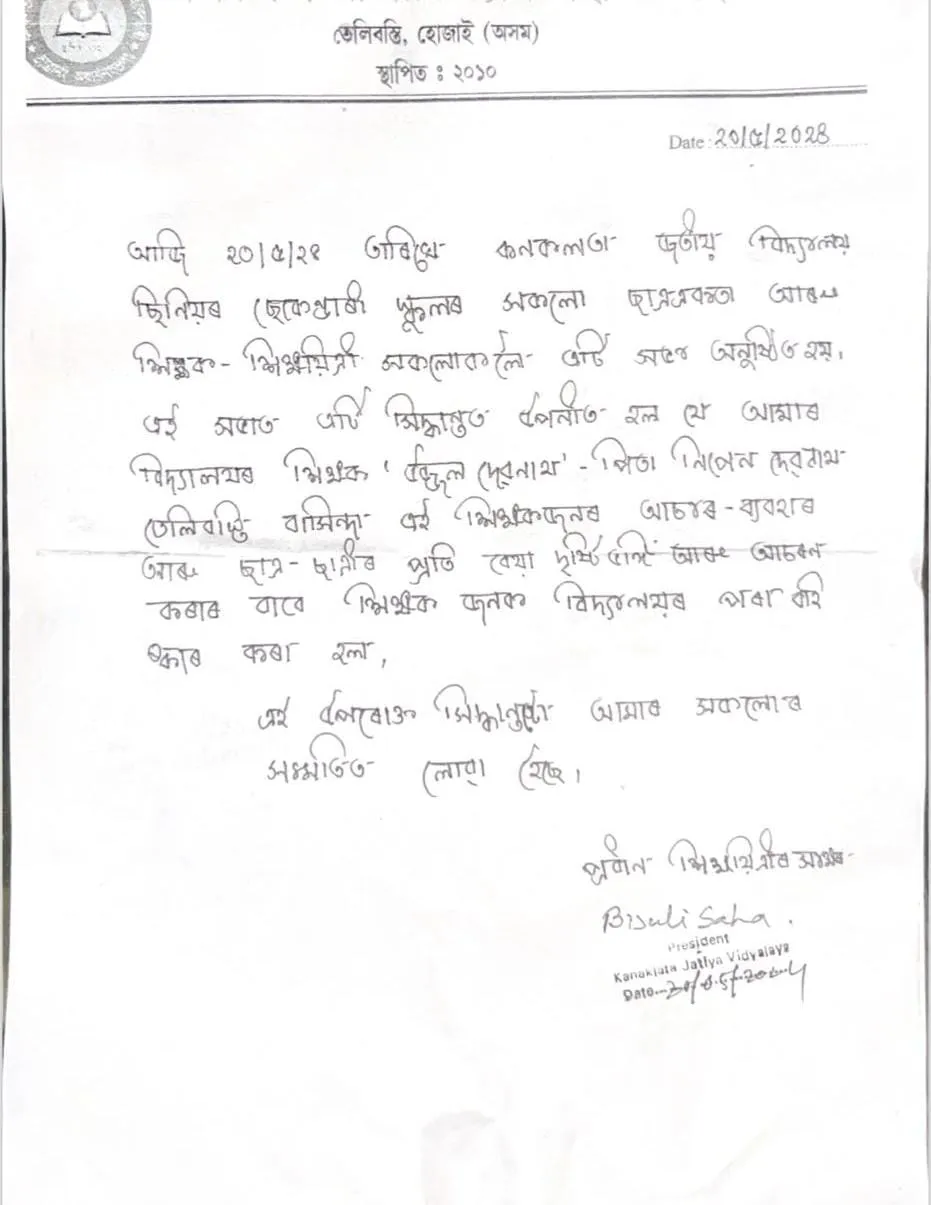 তেলিবস্তি, হোজাই (অসম)
স্থাপিত : ২০১০
Date : ২০/৫/2028
আজি ২০/৫/২৪ তাৰিখে কনকলতা জাতীয় বিদ্যালয়
ছিনিয়ৰ ছেকেণ্ডাৰী স্কুলৰ সকলো আৰু
শিক্ষক - শিক্ষয়িত্ৰী সকলোকলৈ এটি সভা অনুষ্ঠিত হয়.
এই সভাত এটি সিদ্ধান্তত উপনীত হল যে আমাৰ
বিদ্যালয়ৰ শিক্ষক ' উজ্জ্বল দেৱনাথ ' - পিতা নিপেন দেৱনাথ
তেলিবস্তি বাসিন্দা এই শিক্ষকজনৰ আচাৰ - ব্যৱহাৰ
আৰু ছাত্ৰ - ছাত্ৰীৰ প্ৰতি বেয়া দৃষ্টি ভঙ্গি আৰু আচৰন
কৰাৰ বাবে শিক্ষক জনক বিদ্যালয়ৰ পৰা বহি
ষ্কাৰ কৰা হল,
এই উপৰোক্ত সিদ্ধান্তটো আমাৰ সকলোৰ
সন্মতিত লোৱা হৈছে।
প্ৰধান শিক্ষয়িত্ৰীৰ
Bijuli Saha.
President
Kanaklata Jatiya Vidyalaya
Date...20/05/2024